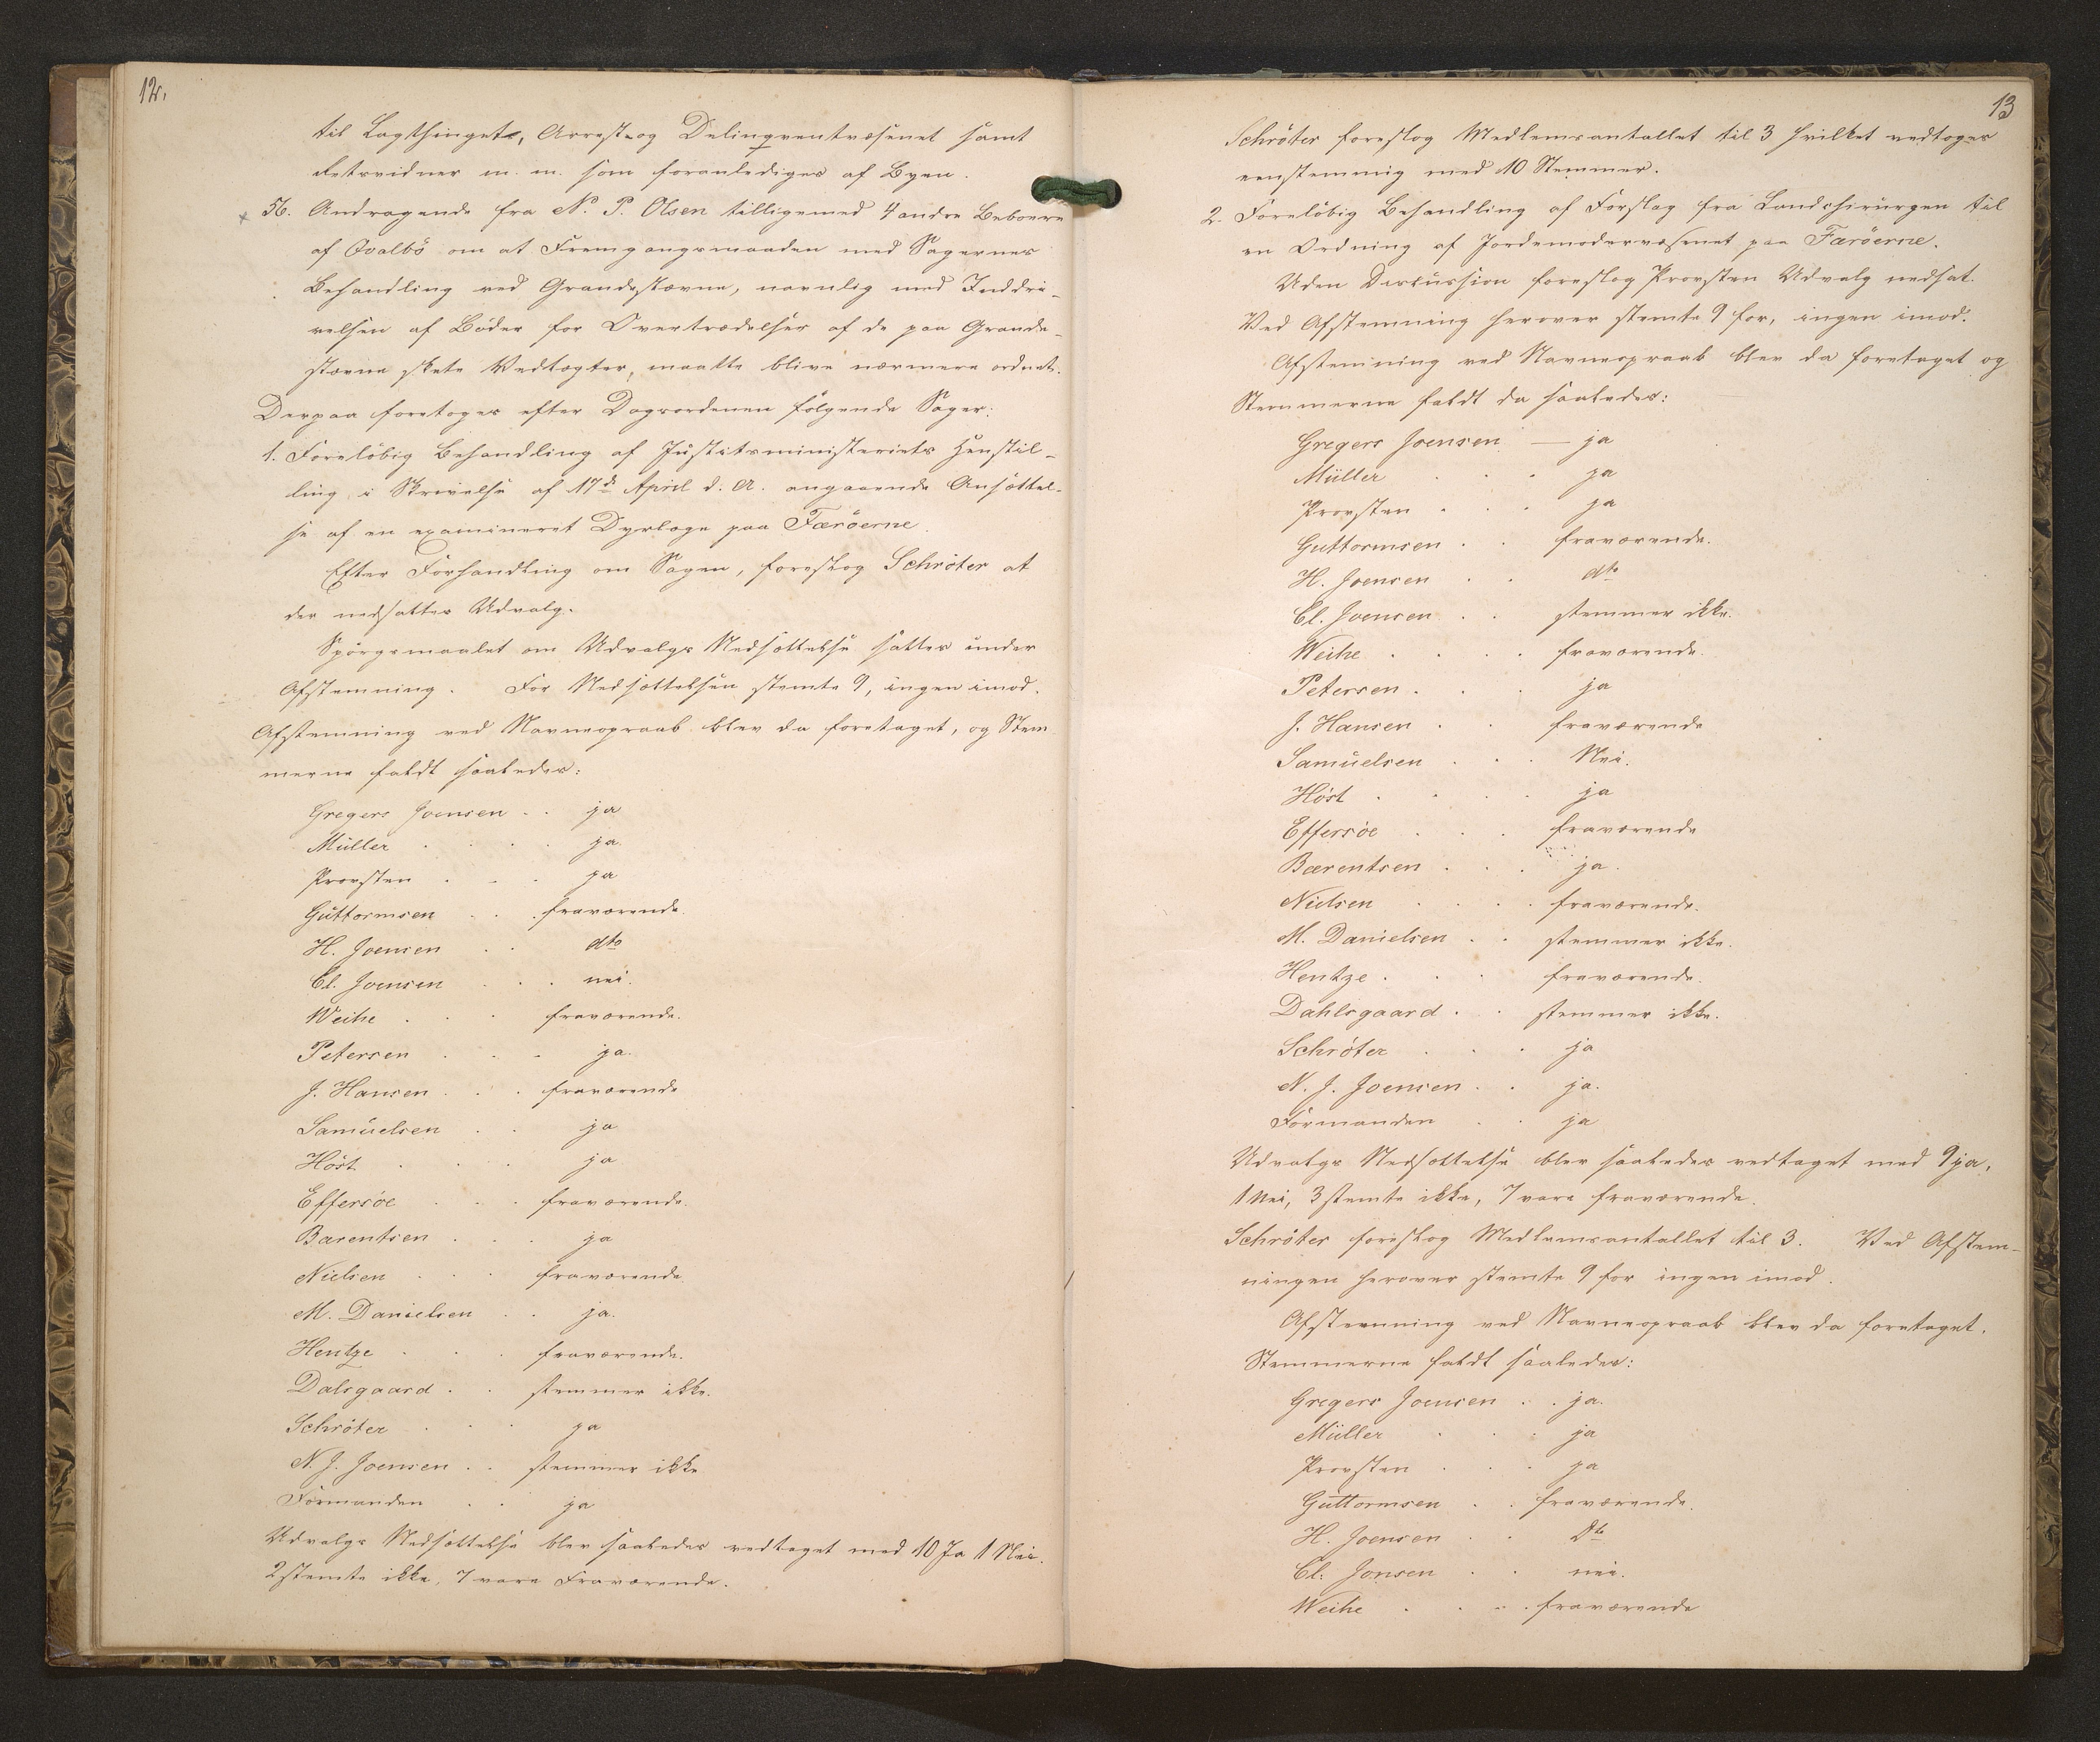 12.
til Lagthinget, Arrest- og Delinqventvæsenet samt
Retsvidner m. m. som foranlediges af Byen.
56. Andragende fra N. P. Olsen tilligemed 4 andre Beboere
af Qvalbö om at Fremgangsmaaden med Sagernes
Behandling ved Grandestævne, navnlig med Inddri-
velsen af Böder for Overtrædelser af de paa Grande-
stævne skete Vedtægter, maatte blive nærmere ordnet.
Derpaa foretoges efter Dagsordenen fölgende Sager:
1. Forelöbig Behandling af Justitsministeriets Henstil-
ling i Skrivelse af 17de April d. A. angaaende Ansættel-
se af en examineret Dyrlæge paa Færöerne.
Efter Forhandling om Sagen, foreslog Schröter at
der nedsattes Udvalg.
Spörgsmaalet om Udvalgs Nedsættelse sattes under
Afstemning. For Nedsættelsen stemte 9, ingen imod.
Afstemning ved Navneopraab blev da foretaget, og Stem
merne faldt saaledes:
Gregers Joensen . . ja
Müller . . . . ja.
Provsten . . . ja
Guttormsen . . . fraværende.
H. Joensen . . dto
Cl. Joensen . . . nei.
Weihe . . . fraværende.
Petersen . . - ja.
J. Hansen . . . fraværende
Samuelsen . . ja
Höst . . . ja
Effersöe . . . fraværende.
Bærentsen . . . ja
Nielsen . . . fraværende.
M. Danielsen . . ja.
Hentze . . . fraværende.
Dalsgaard . . stemmer ikke.
Schröter . . . ja
N. J. Joensen . . stemmer ikke
Formanden . . ja
Udvalgs Nedsættelse blev saaledes vedtaget med 10 Ja 1 Nei.
2 stemte ikke, 7 vare Fraværende.
13
Schröter foreslog Medlemsantallet til 3 hvilket vedtoges
eenstemmig med 10 Stemmer.
2. Forelöbig Behandling af Forslag fra Landchirurgen til
en Ordning af Jordemodervæsenet paa Færöerne.
Uden Discussion foreslog Provsten Udvalg nedsat.
Ved Afstemning herover stemte 9 for, ingen imod.
Afstemning ved Navneopraab blev da foretaget og
Stemmerne faldt da saaledes:
Gregers Joensen — ja
Müller . . . ja
Provsten . . . ja
Guttormsen . . fraværende.
H. Joensen . . dto
Cl. Joensen . . stemmer ikke.
Weihe . . . . fraværende.
Petersen . . . ja
J. Hansen . . fraværende
Samuelsen . . . Nei.
Höst . . . . ja
Effersöe . . . fraværende
Bærentsen . . . ja.
Nielsen . . . . fraværende.
M. Danielsen . . stemmer ikke.
Hentze . . . fraværende.
Dahlsgaard . . stemmer ikke.
Schröter . . . ja
N. J. Joensen . . ja.
Formanden . . ja
Udvalgs Nedsættelse blev saaledes vedtaget med 9 ja,
1 Nei, 3 stemte ikke, 7 vare fraværende.
Schröter foreslog Medlemsantallet til 3. Ved Afstem-
ningen herover stemte 9 for ingen imod.
Afstemning ved Navneopraab blev da foretaget.
Stemmerne faldt saaledes:
Gregers Joensen . . ja.
Müller . . . ja
Provsten . . . ja
Guttormsen . . fraværende.
H. Joensen . . Dto
Cl. Jonsen . . nei.
Weihe . . . . fraværende